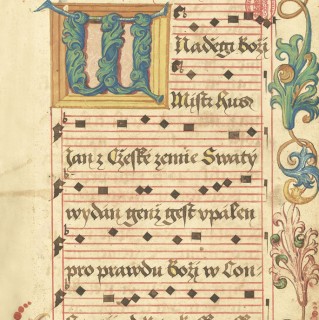 W
Naděgi boži
Mistr hus
Jan z Cžeské zemie Swatý
wydán genž gest vpálen
pro prawdu boži w Con-